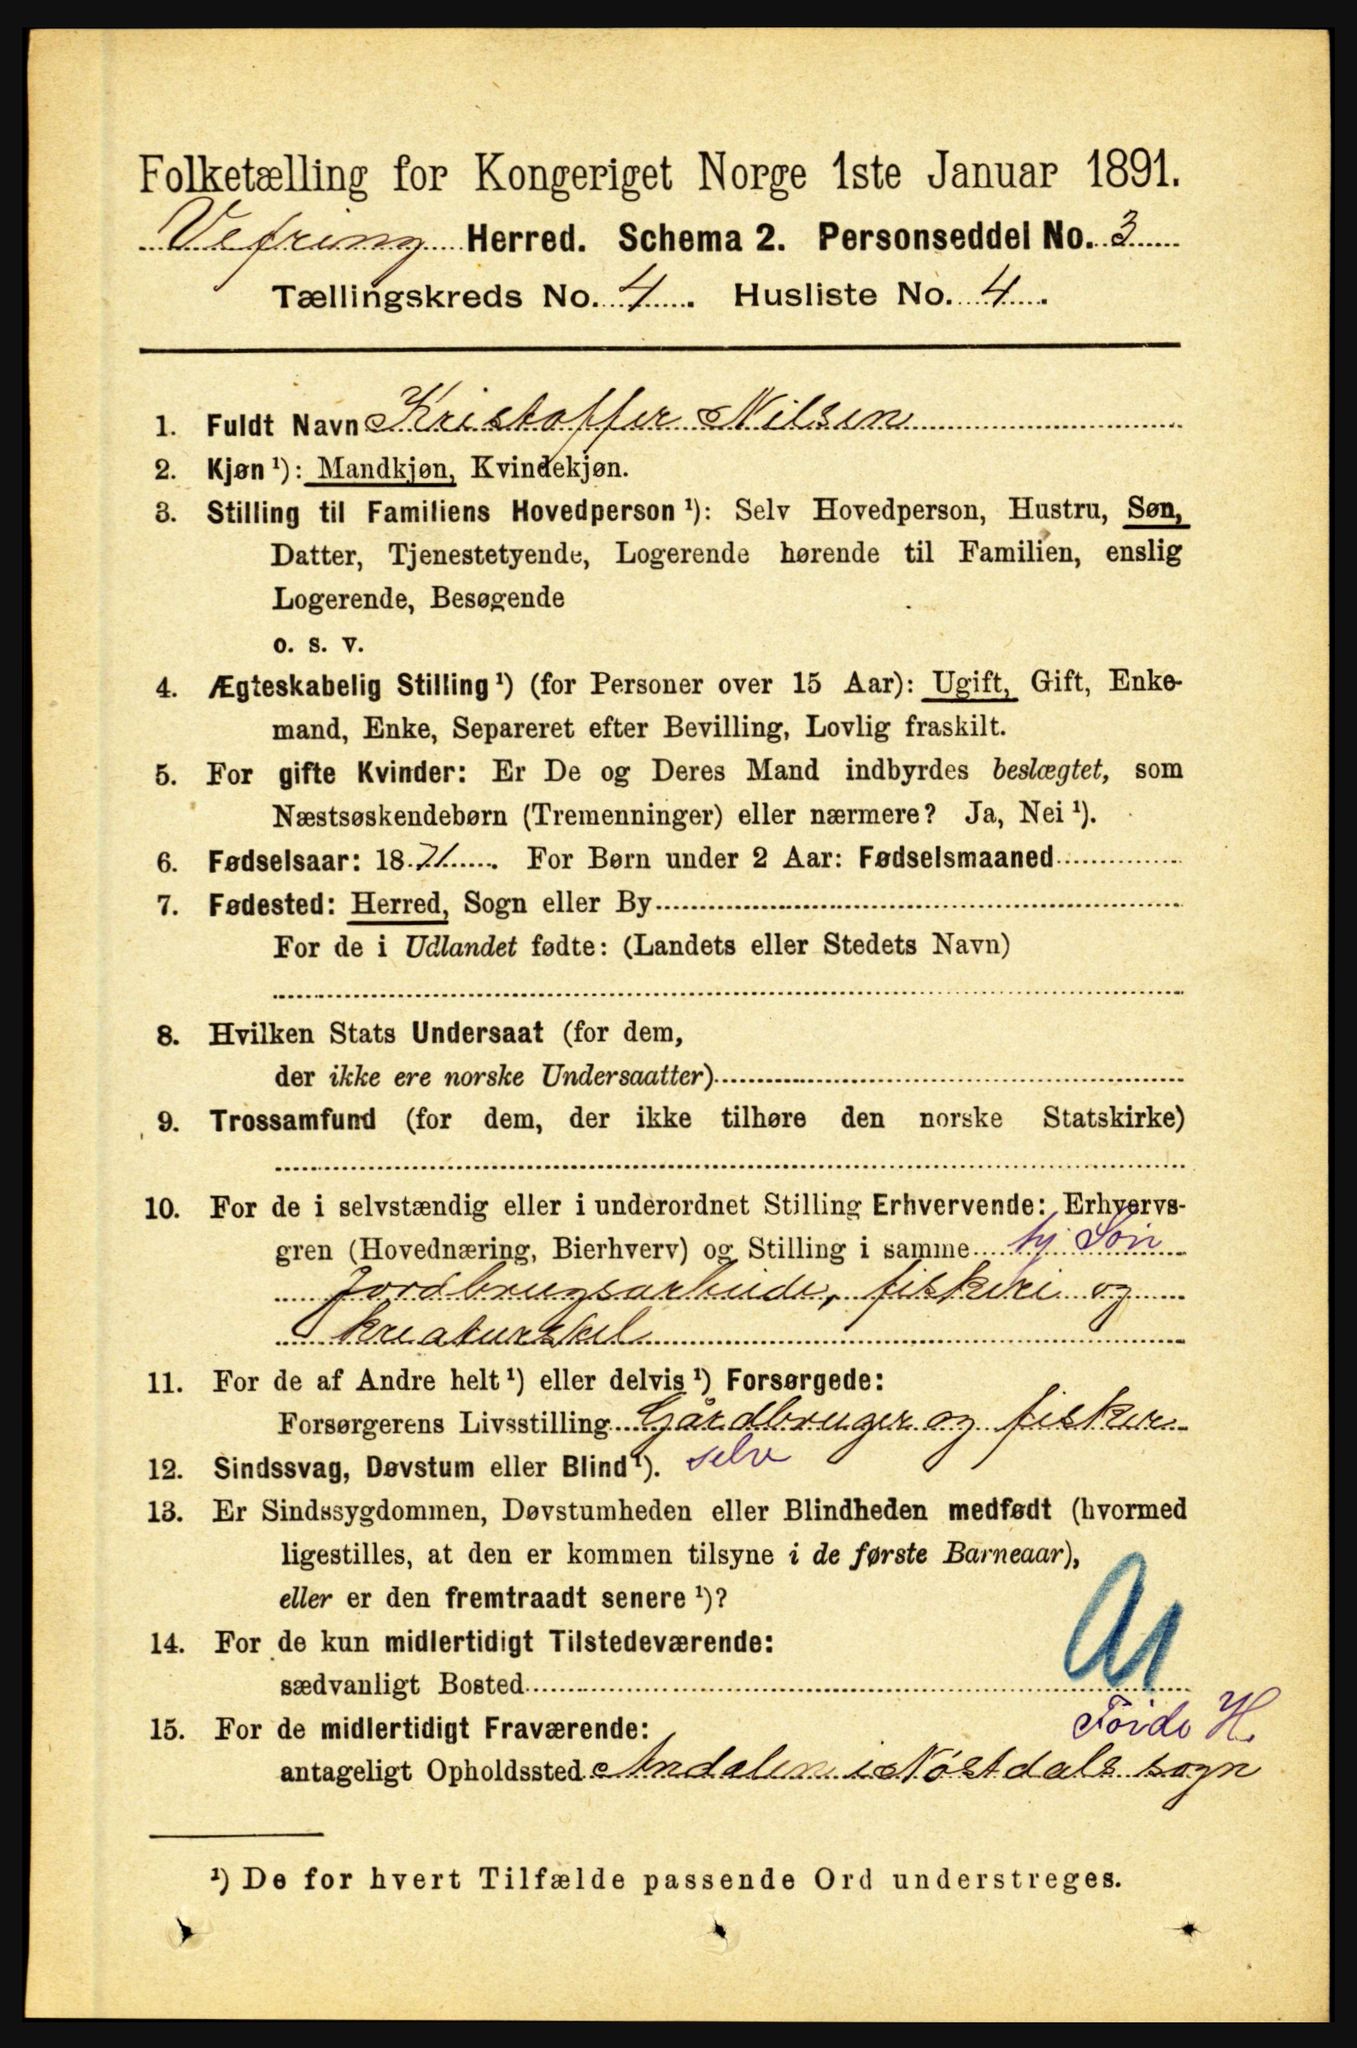 Folketælling for Kongeriget Norge 1ste Januar 1891.
Vefring Herred. Schema 2. Personseddel No. 3
Tællingskreds No. 4. Husliste No. 4.
1. Fuldt Navn Kristoffer Nilsen
2. Kjøn ¹): Mandkjøn, Kvindekjøn.
3. Stilling til Familiens Hovedperson ¹): Selv Hovedperson, Hustru, Søn,
Datter, Tjenestetyende, Logerende hørende til Familien, enslig
Logerende, Besøgende
o. s. v.
4. Ægteskabelig Stilling ¹) (for Personer over 15 Aar): Ugift, Gift, Enke-
mand, Enke, Separeret efter Bevilling, Lovlig fraskilt.
5. For gifte Kvinder: Er De og Deres Mand indbyrdes beslægtet, som
Næstsøskendebørn (Tremenninger) eller nærmere? Ja, Nei ¹).
6. Fødselsaar: 1871. For Børn under 2 Aar: Fødselsmaaned
7. Fødested: Herred, Sogn eller By
For de i Udlandet fødte: (Landets eller Stedets Navn)
8. Hvilken Stats Undersaat (for dem,
der ikke ere norske Undersaatter)
9. Trossamfund (for dem, der ikke tilhøre den norske Statskirke)
10. For de i selvstændig eller i underordnet Stilling Erhvervende: Erhvervs-
gren (Hovednæring, Bierhverv) og Stilling i samme hj Søn
Jordbrugsarbeide, fiskeri og
kreaturstel
11. For de af Andre helt ¹) eller delvis ¹) Forsørgede:
Forsørgerens Livsstilling Gårdbruger og fisker
12. Sindssvag, Døvstum eller Blind ¹). selv
13. Er Sindssygdommen, Døvstumheden eller Blindheden medfødt (hvormed
ligestilles, at den er kommen tilsyne i de første Barneaar),
eller er den fremtraadt senere ¹)?
14. For de kun midlertidigt Tilstedeværende:
sædvanligt Bosted
15. For de midlertidigt Fraværende: Førde H.
antageligt Opholdssted Andalen i Nøstdals sogn
¹) De for hvert Tilfælde passende Ord understreges.